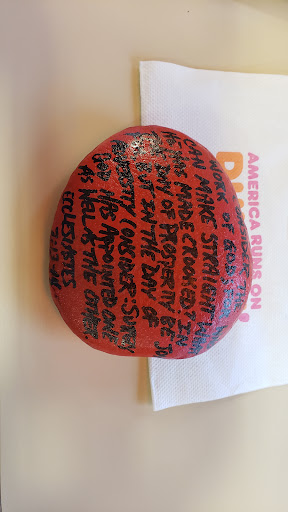 WORK OF GOD
CAN MAKE STRAIGHT WHAT
HE HAS MADE CROOKED? IN
THE DAY OF PROSPERITY BE JO
BUT IN THE DAY OF
ADVERSITY CONSIDER: SURELY
GOD HAS APPOINTED ONE
AS WELL AS THE OTHER.
ECCLESIASTES
7:13-14
AMERICA RUNS ON